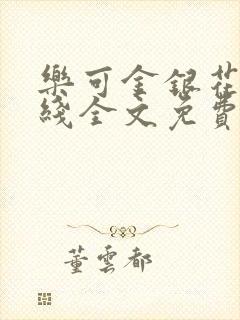 樂可金銀花
綫全文免費
董雲都